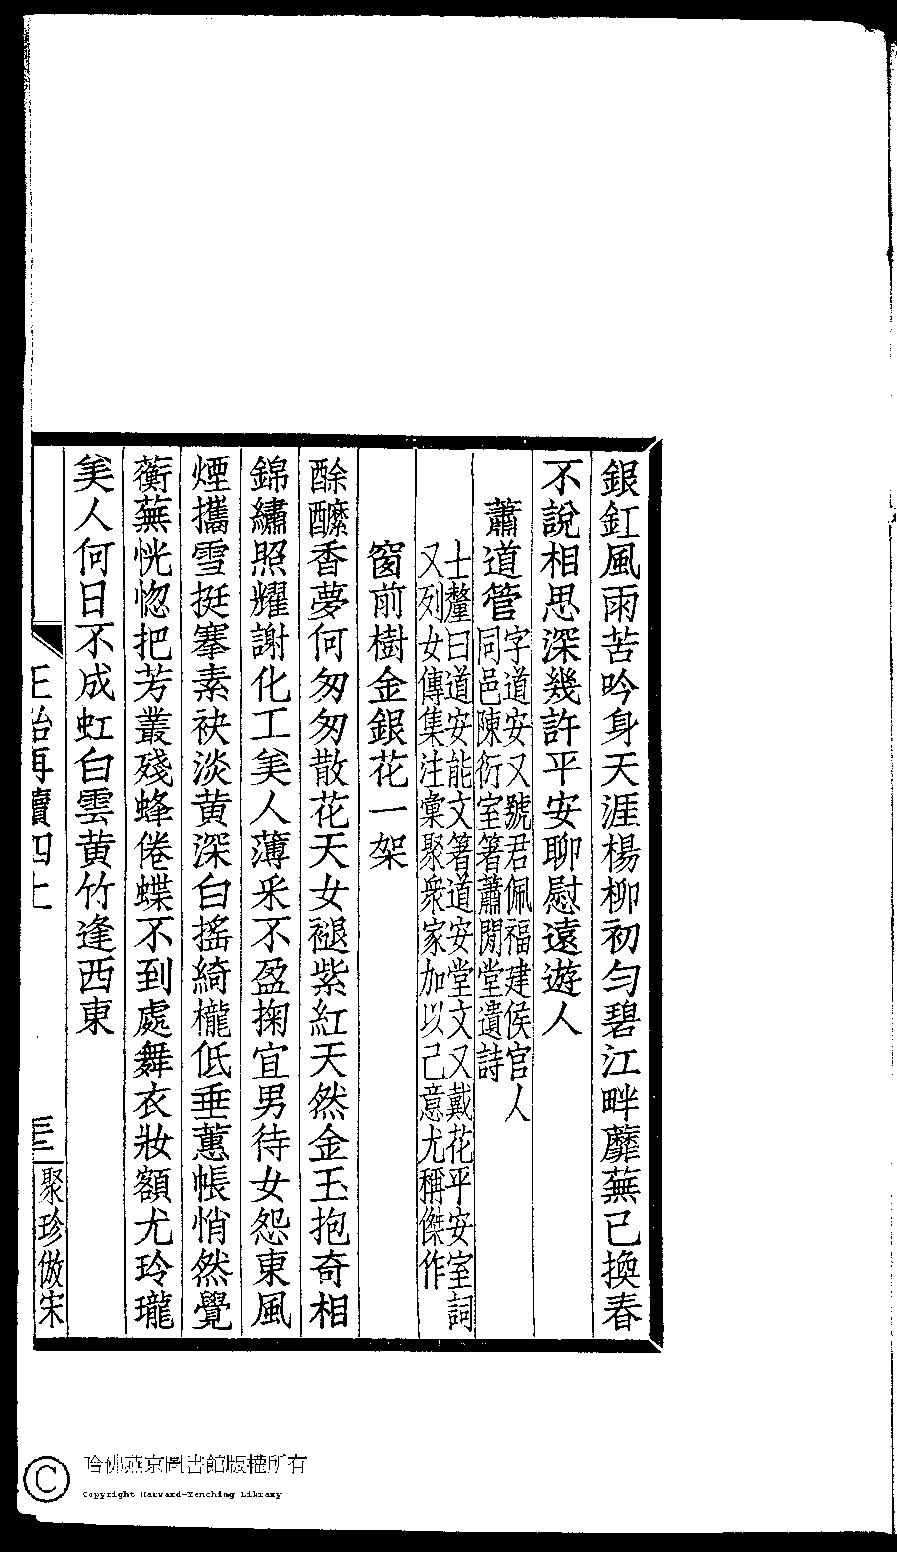 銀釭風雨苦吟身天涯楊柳初勻碧江畔蘼蕪已換春
不說相思深幾許平安聊慰遠遊人
蕭道管字道安又號君佩福建侯官人
同邑陳衍室箸蕭閒堂遺詩
士釐曰道安能文箸道安堂文又戴花平安室詞
又列女傳集注彙聚衆家加以己意尤稱傑作
窗前樹金銀花一架
酴醾香夢何匆匆散花天女褪紫紅天然金玉抱奇相
錦繡照耀謝化工美人薄采不盈掬宜男待女怨東風
煙攜雪挺搴素袂淡黃深白搖綺櫳低垂蕙帳悄然覺
蘅蕪恍惚把芳叢殘蜂倦蝶不到處舞衣妝額尤玲瓏
美人何日不成虹白雲黃竹逢西東
再續四上
三
聚珍倣宋
哈佛燕京圖書館版權所有
Copyright Harvard-Yenching Library